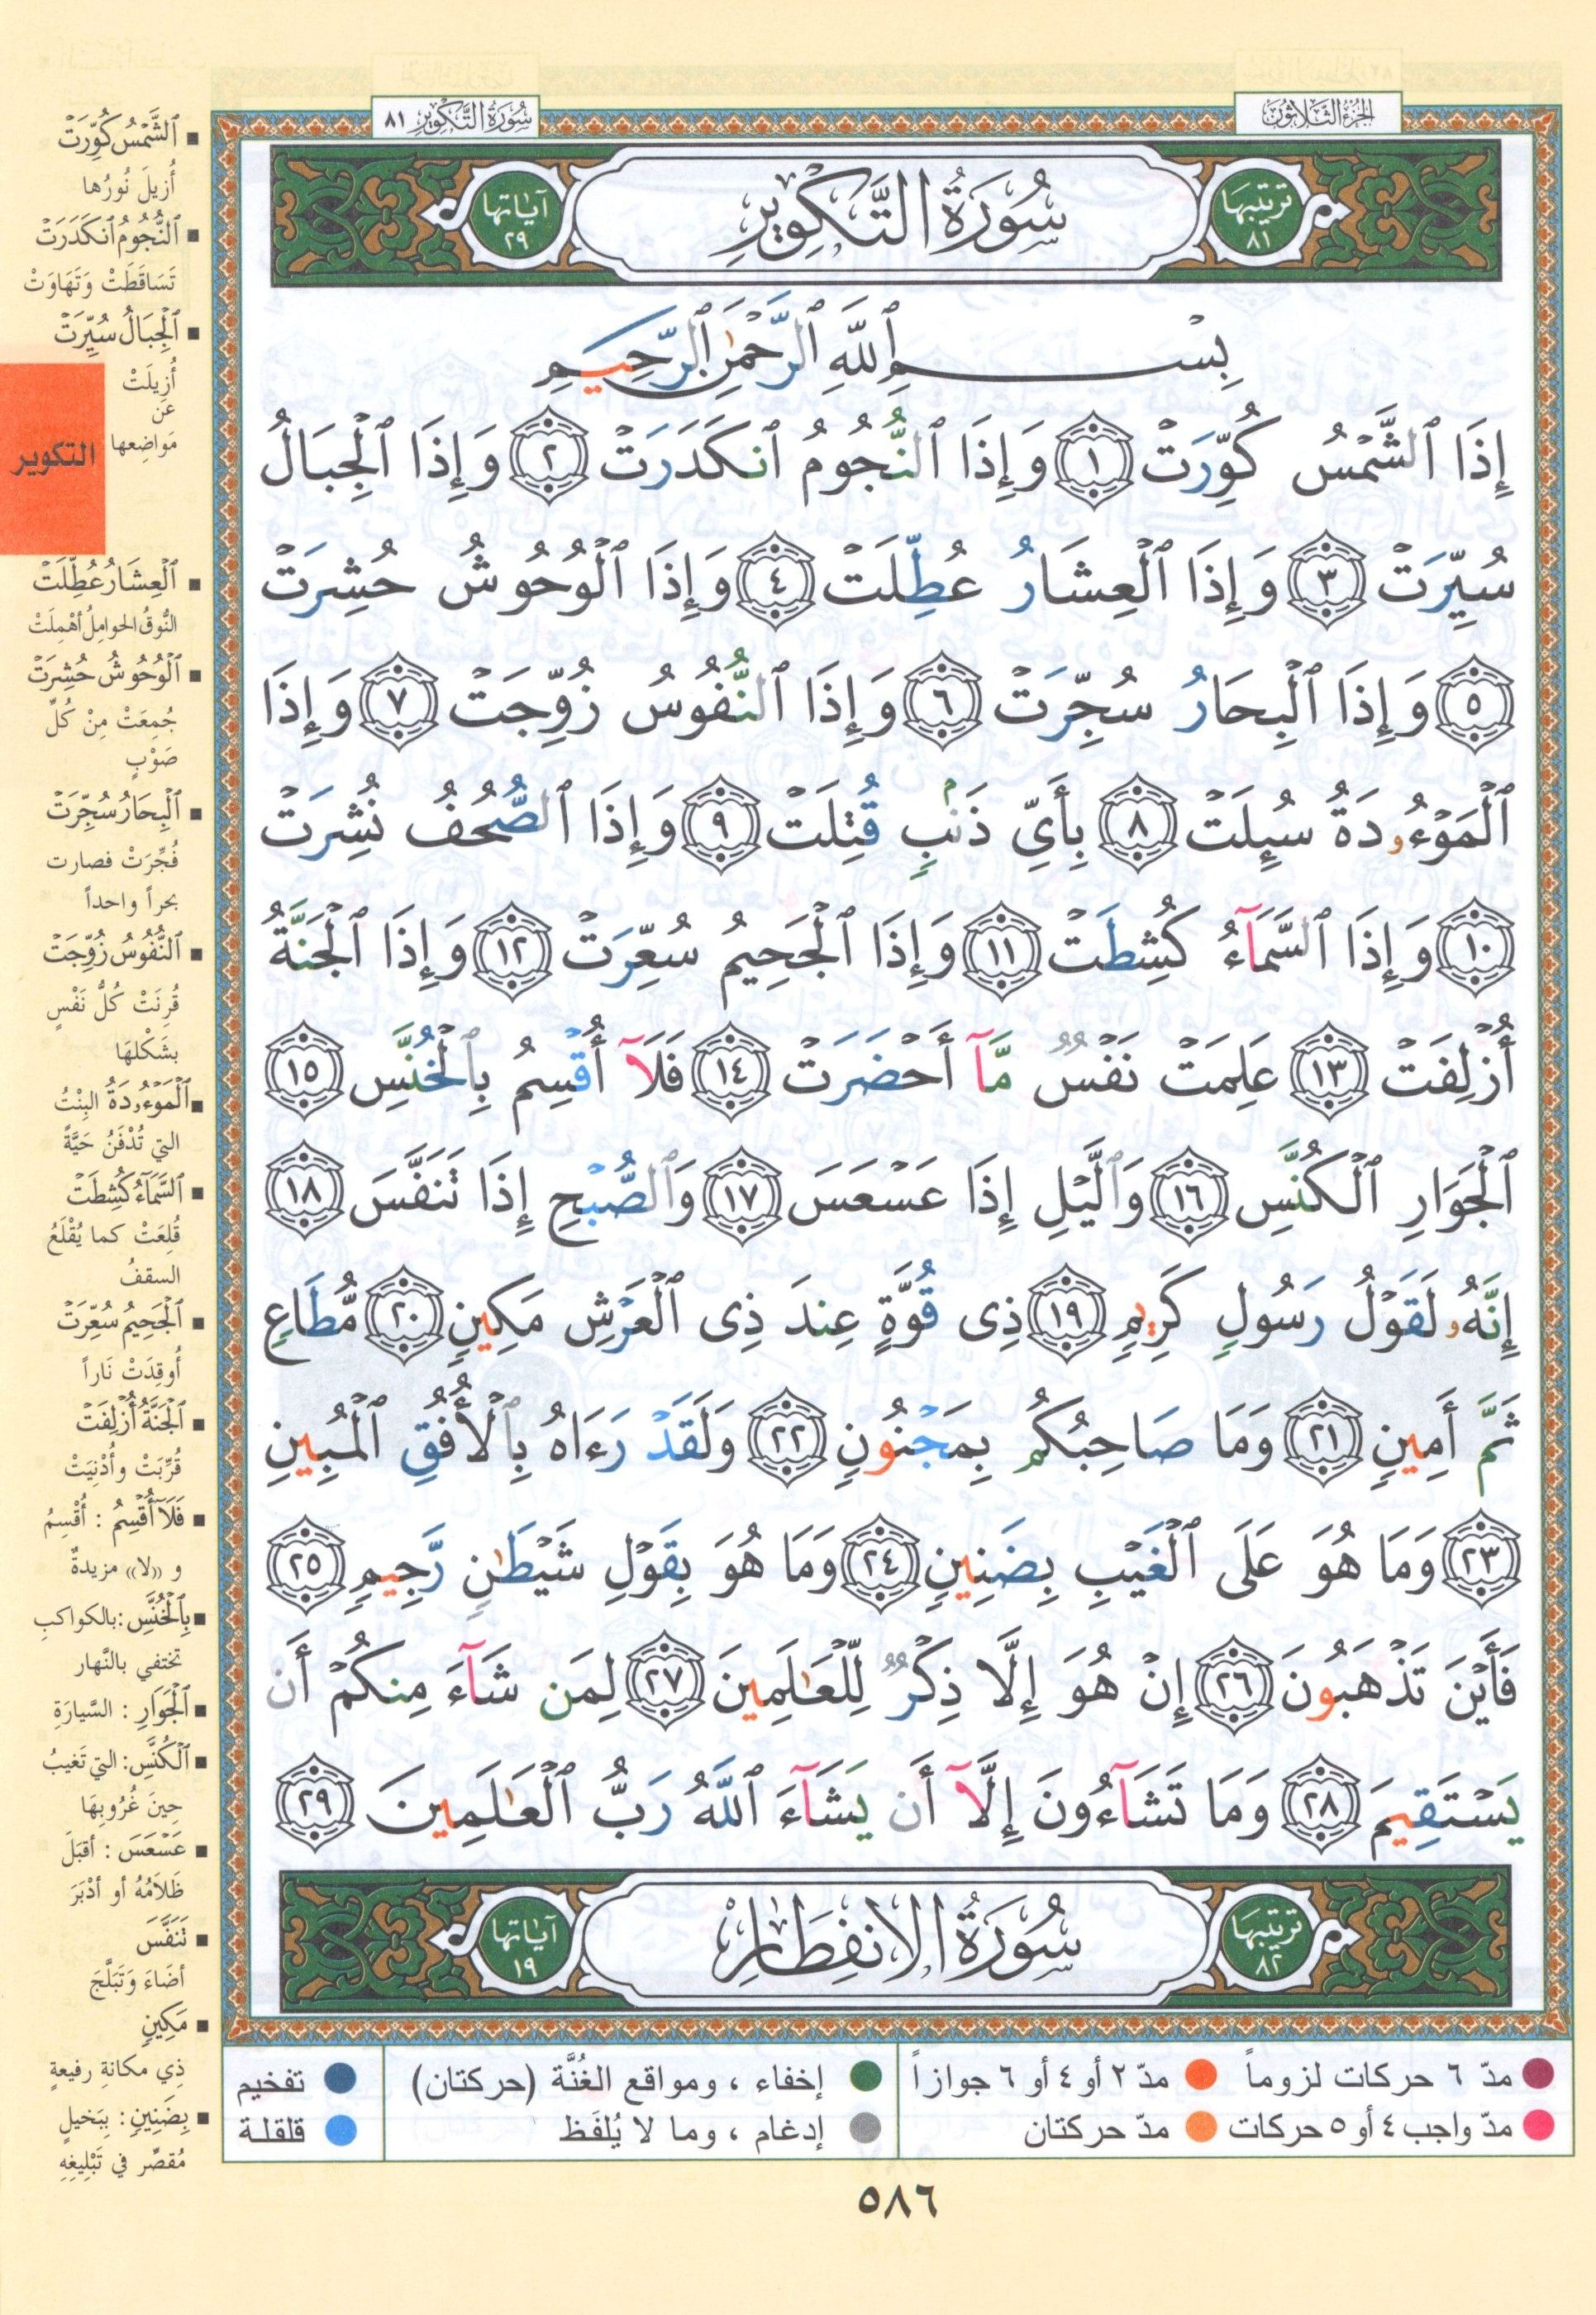 الجزء الثلاثون
سورة التكوير ٨١
ترتيبها ٨١
سُورَةُ التَّكْوِيرِ
آياتها ٢٩
بِسْمِ ٱللَّهِ ٱلرَّحْمَٰنِ ٱلرَّحِيمِ
إِذَا ٱلشَّمْسُ كُوِّرَتْ ١ وَإِذَا ٱلنُّجُومُ ٱنكَدَرَتْ ٢ وَإِذَا ٱلْجِبَالُ
سُيِّرَتْ ٣ وَإِذَا ٱلْعِشَارُ عُطِّلَتْ ٤ وَإِذَا ٱلْوُحُوشُ حُشِرَتْ
٥ وَإِذَا ٱلْبِحَارُ سُجِّرَتْ ٦ وَإِذَا ٱلنُّفُوسُ زُوِّجَتْ ٧ وَإِذَا
ٱلْمَوْءُۥدَةُ سُئِلَتْ ٨ بِأَيِّ ذَنۢبٍ قُتِلَتْ ٩ وَإِذَا ٱلصُّحُفُ نُشِرَتْ
١٠ وَإِذَا ٱلسَّمَآءُ كُشِطَتْ ١١ وَإِذَا ٱلْجَحِيمُ سُعِّرَتْ ١٢ وَإِذَا ٱلْجَنَّةُ
أُزْلِفَتْ ١٣ عَلِمَتْ نَفْسٌ مَّآ أَحْضَرَتْ ١٤ فَلَآ أُقْسِمُ بِٱلْخُنَّسِ ١٥
ٱلْجَوَارِ ٱلْكُنَّسِ ١٦ وَٱلَّيْلِ إِذَا عَسْعَسَ ١٧ وَٱلصُّبْحِ إِذَا تَنَفَّسَ ١٨
إِنَّهُۥ لَقَوْلُ رَسُولٍ كَرِيمٍ ١٩ ذِى قُوَّةٍ عِندَ ذِى ٱلْعَرْشِ مَكِينٍ ٢٠ مُّطَاعٍ
ثَمَّ أَمِينٍ ٢١ وَمَا صَاحِبُكُم بِمَجْنُونٍ ٢٢ وَلَقَدْ رَءَاهُ بِٱلْأُفُقِ ٱلْمُبِينِ
٢٣ وَمَا هُوَ عَلَى ٱلْغَيْبِ بِضَنِينٍ ٢٤ وَمَا هُوَ بِقَوْلِ شَيْطَٰنٍ رَّجِيمٍ ٢٥
فَأَيْنَ تَذْهَبُونَ ٢٦ إِنْ هُوَ إِلَّا ذِكْرٌ لِّلْعَٰلَمِينَ ٢٧ لِمَن شَآءَ مِنكُمْ أَن
يَسْتَقِيمَ ٢٨ وَمَا تَشَآءُونَ إِلَّآ أَن يَشَآءَ ٱللَّهُ رَبُّ ٱلْعَٰلَمِينَ ٢٩
ترتيبها ٨٢
سُورَةُ الانفِطَارِ
آياتها ١٩
ٱلشَّمْسُ كُوِّرَتْ
أُزيلَ نُورُها
ٱلنُّجُومُ ٱنكَدَرَتْ
تَسَاقَطَتْ وَتَهَاوَتْ
ٱلْجِبَالُ سُيِّرَتْ
أُزِيلَتْ
عَن
مَواضِعها
التكوير
ٱلْعِشَارُ عُطِّلَتْ
النُّوقُ الحوامِلُ أُهْمِلَتْ
ٱلْوُحُوشُ حُشِرَتْ
جُمِعَتْ مِنْ كُلِّ
صَوْبٍ
ٱلْبِحَارُ سُجِّرَتْ
فُجِّرَتْ فصارت
بحراً واحداً
ٱلنُّفُوسُ زُوِّجَتْ
قُرِنَتْ كُلُّ نَفْسٍ
بشَكْلِهَا
ٱلْمَوْءُۥدَةُ البِنْتُ
التي تُدْفَنُ حَيَّةً
ٱلسَّمَآءُ كُشِطَتْ
قُلِعَتْ كما يُقْلَعُ
السقفُ
ٱلْجَحِيمُ سُعِّرَتْ
أُوقِدَتْ نَاراً
ٱلْجَنَّةُ أُزْلِفَتْ
قُرِّبَتْ وأُدْنِيَتْ
فَلَآ أُقْسِمُ : أُقْسِمُ
و ((لا)) مزيدةٌ
بِٱلْخُنَّسِ : بالكواكبِ
تختفي بالنَّهار
ٱلْجَوَارِ : السَّيارَةِ
ٱلْكُنَّسِ : التي تَغيبُ
حِينَ غُرُوبِهَا
عَسْعَسَ : أقبَلَ
ظَلامُهُ أو أدْبَرَ
تَنَفَّسَ
أضَاءَ وَتَبَلَّجَ
مَكِينٍ
ذِي مكانةٍ رفيعةٍ
بِضَنِينٍ : بِبَخيلٍ
مُقصِّرٍ في تَبْلِيغِهِ
مدّ ٦ حركات لزوماً مدّ ٢ أو ٤ أو ٦ جوازاً إخفاء ، ومواقع الغُنَّة (حركتان) تفخيم
مدّ واجب ٤ أو ٥ حركات مدّ حركتان إدغام ، وما لا يُلفَظ قلقلة
٥٨٦